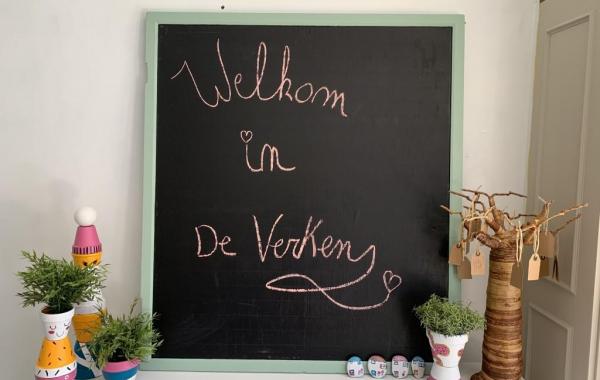 Welkom
in
De Verken